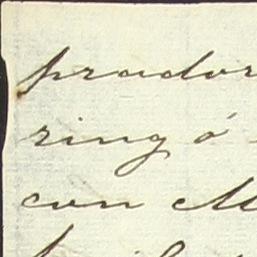 prador
ring ó
con M